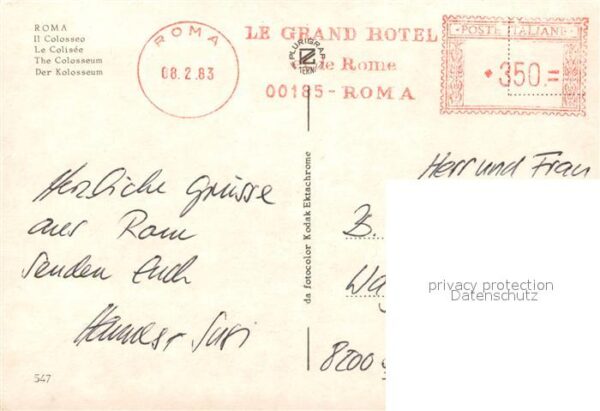 ROMA
Il Colosseo
Le Colisée
The Colosseum
Der Kolosseum
ROMA
08.2.83
LE GRAND HOTEL
de Rome
00185-ROMA
PLURIGRAF
TERNI
POSTE ITALIANE
350.=
Herzliche Grüsse
aus Rom
senden Euch
Hannes + Susi
547
da fotocolor Kodak Ektachrome
Herr und Frau
B.
8200
privacy protection
Datenschutz